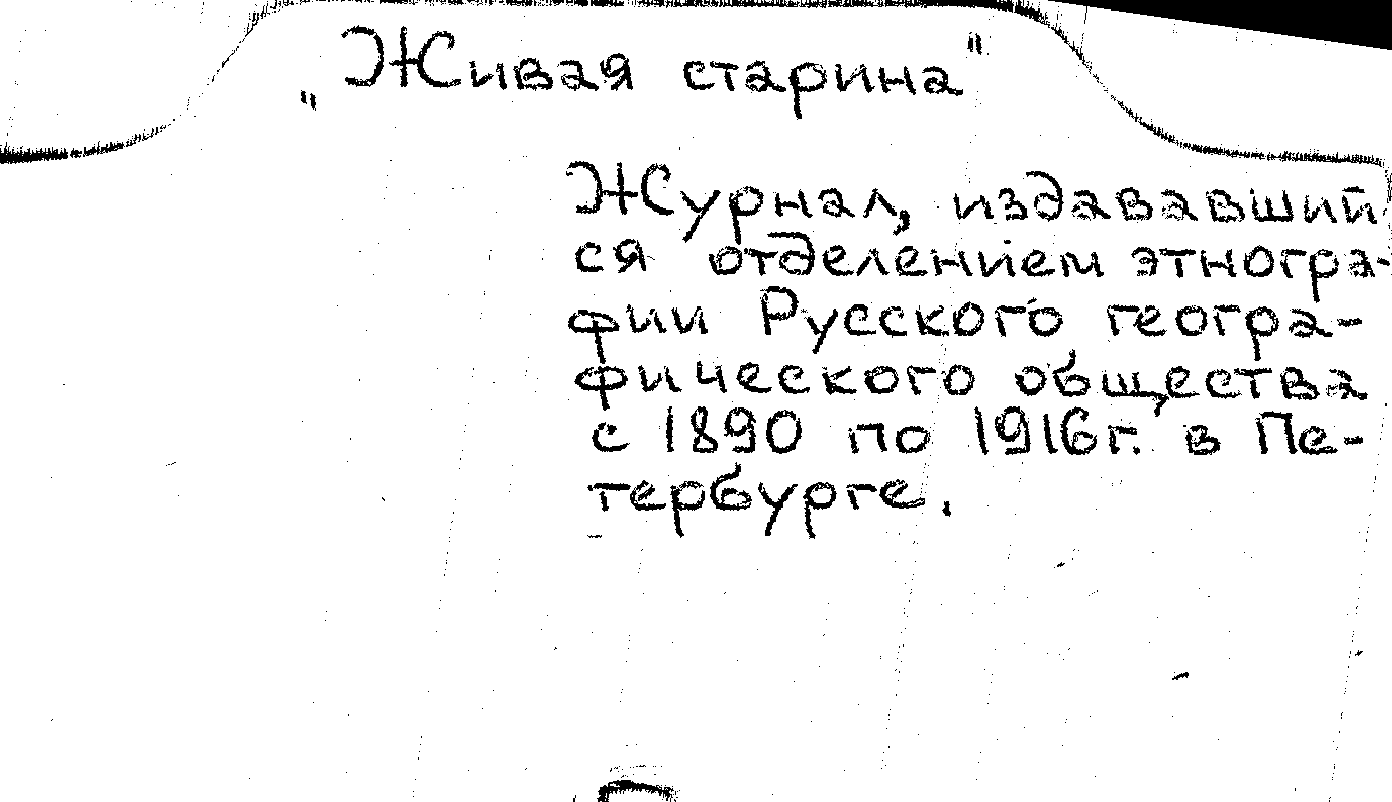 „Живая старина"
Журнал, издававший
ся отделением этногра-
фии Русского геогра-
фического общества
с 1890 по 1916г. в Пе-
тербурге.